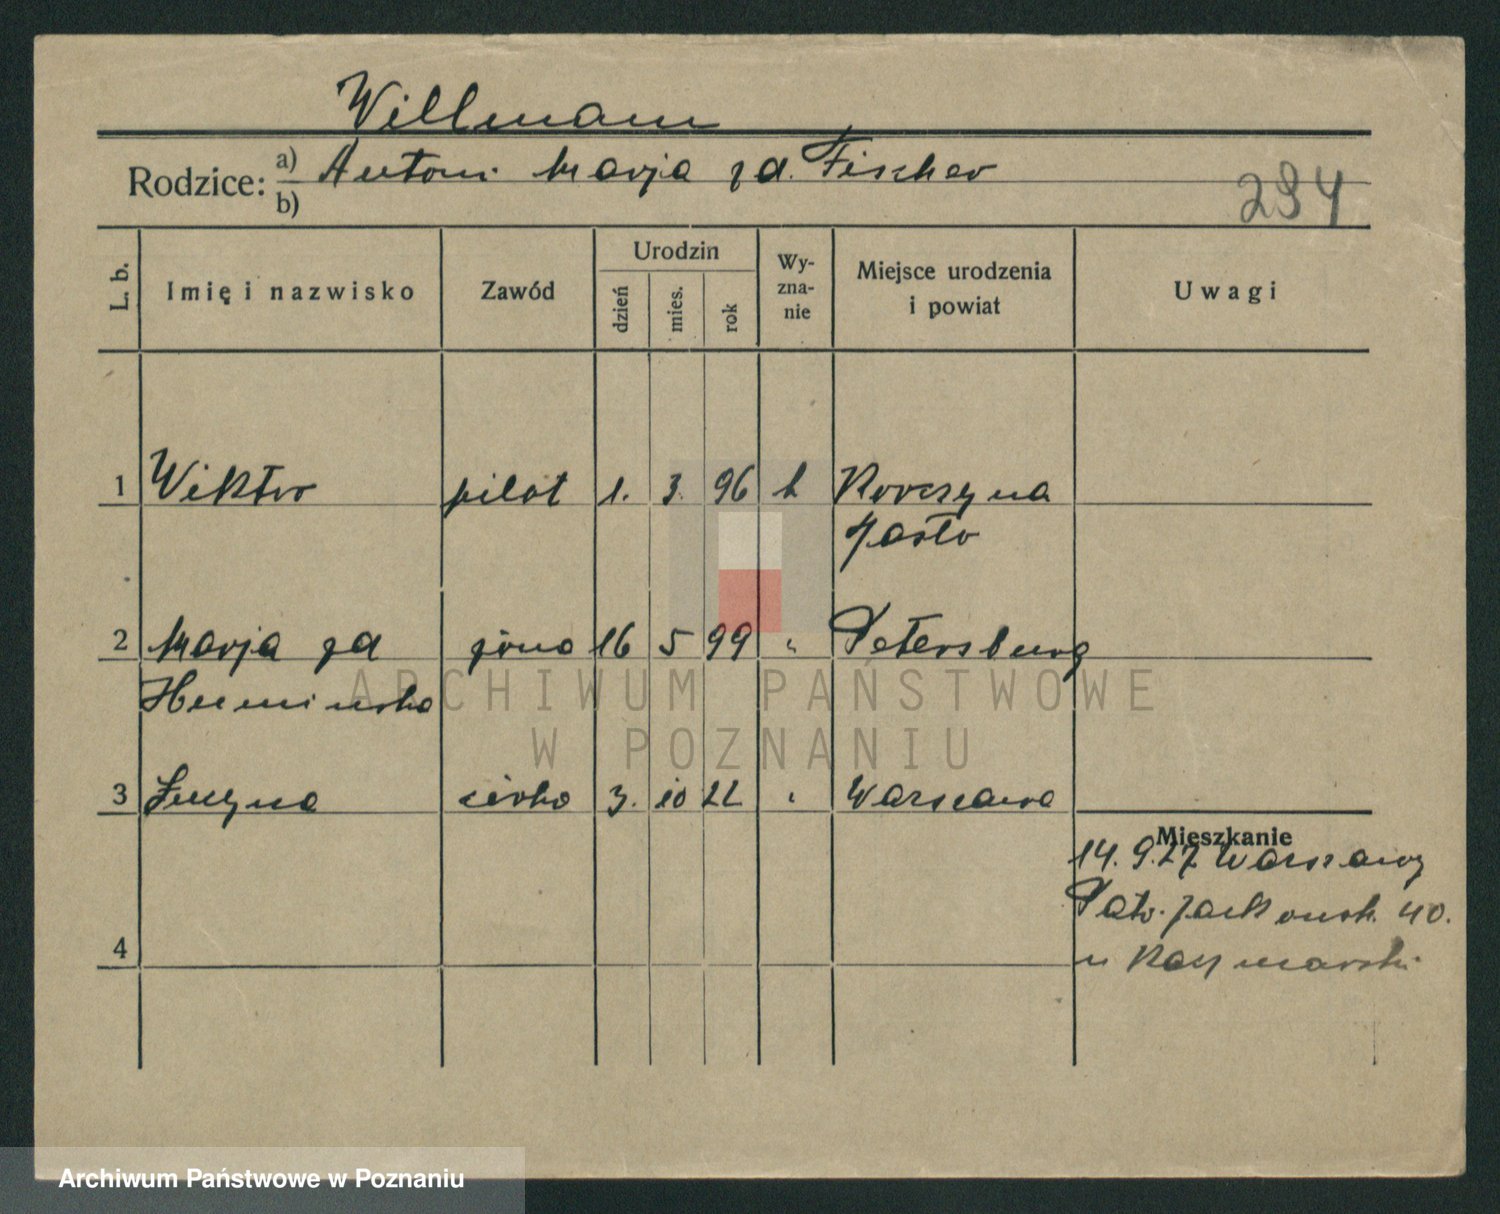 Willmann
Rodzice: a) Antoni Marja zd. Fischer
b)
294
L. b.
Imię i nazwisko
Zawód
Urodzin
dzień
mies.
rok
Wy-
zna-
nie
Miejsce urodzenia
i powiat
Uwagi
1 Wiktor pilot 1. 3. 96 k Korczyna
Jasło
2 Marja zd żona 16 5 99 " Petersburg
3 Lucyna córka 3. 10 22 " Warszawa
Mieszkanie
14. 9.27 Warszawy
Patr. Jackowsk. 40.
u Kaczmarski
4
ARCHIWUM PAŃSTWOWE
W POZNANIU
Archiwum Państwowe w Poznaniu